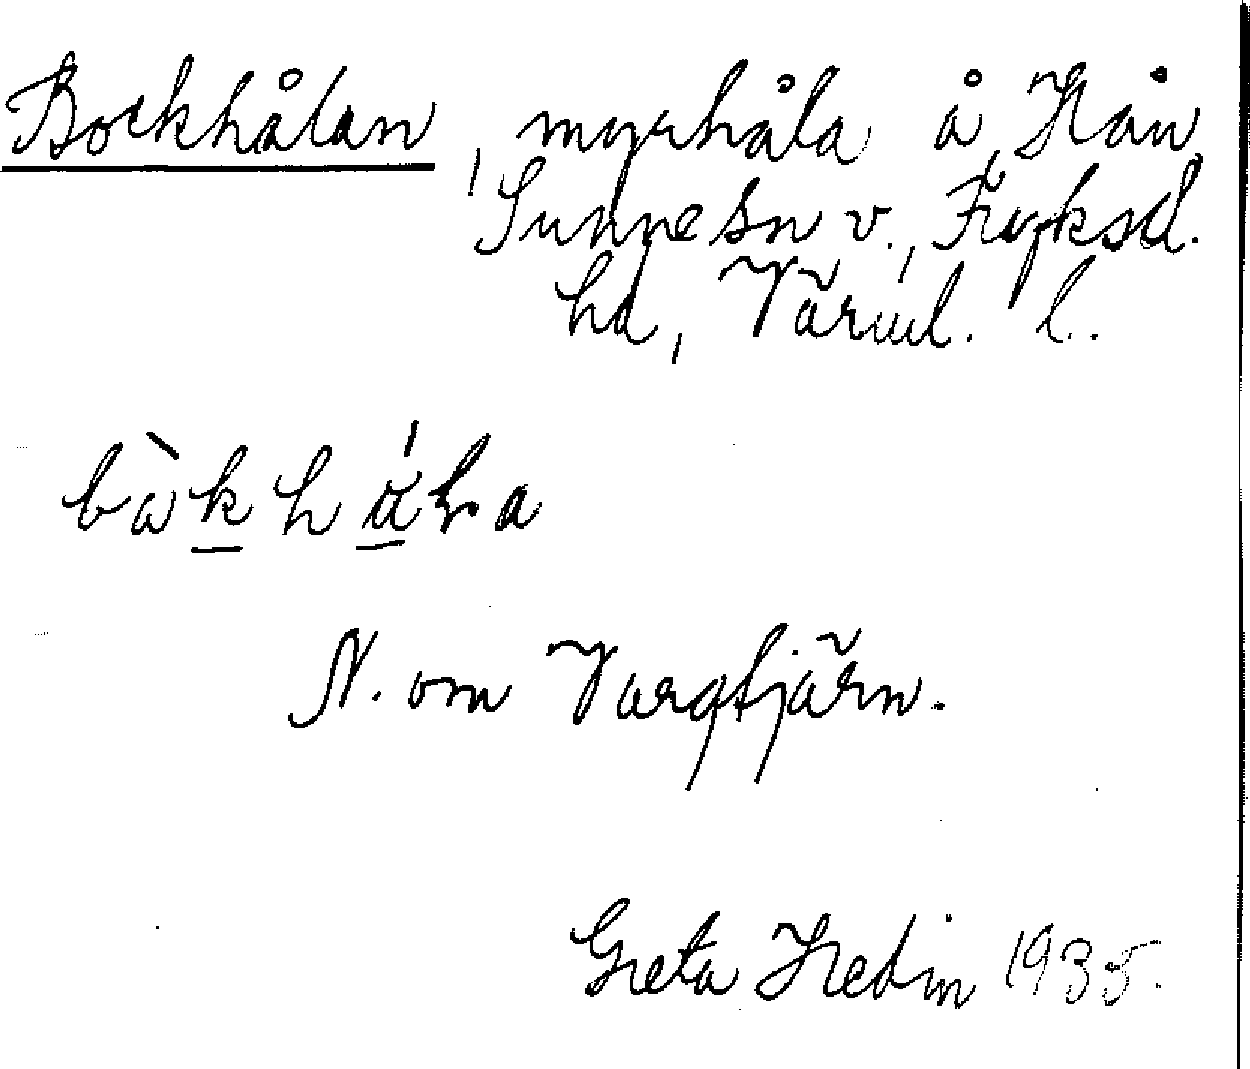 Bockhålan, myrhåla å Hån,
Sunne sn v., Fryksd.
hd, Värml. l.
N. om Vargtjärn.
Greta Hedin 1935.